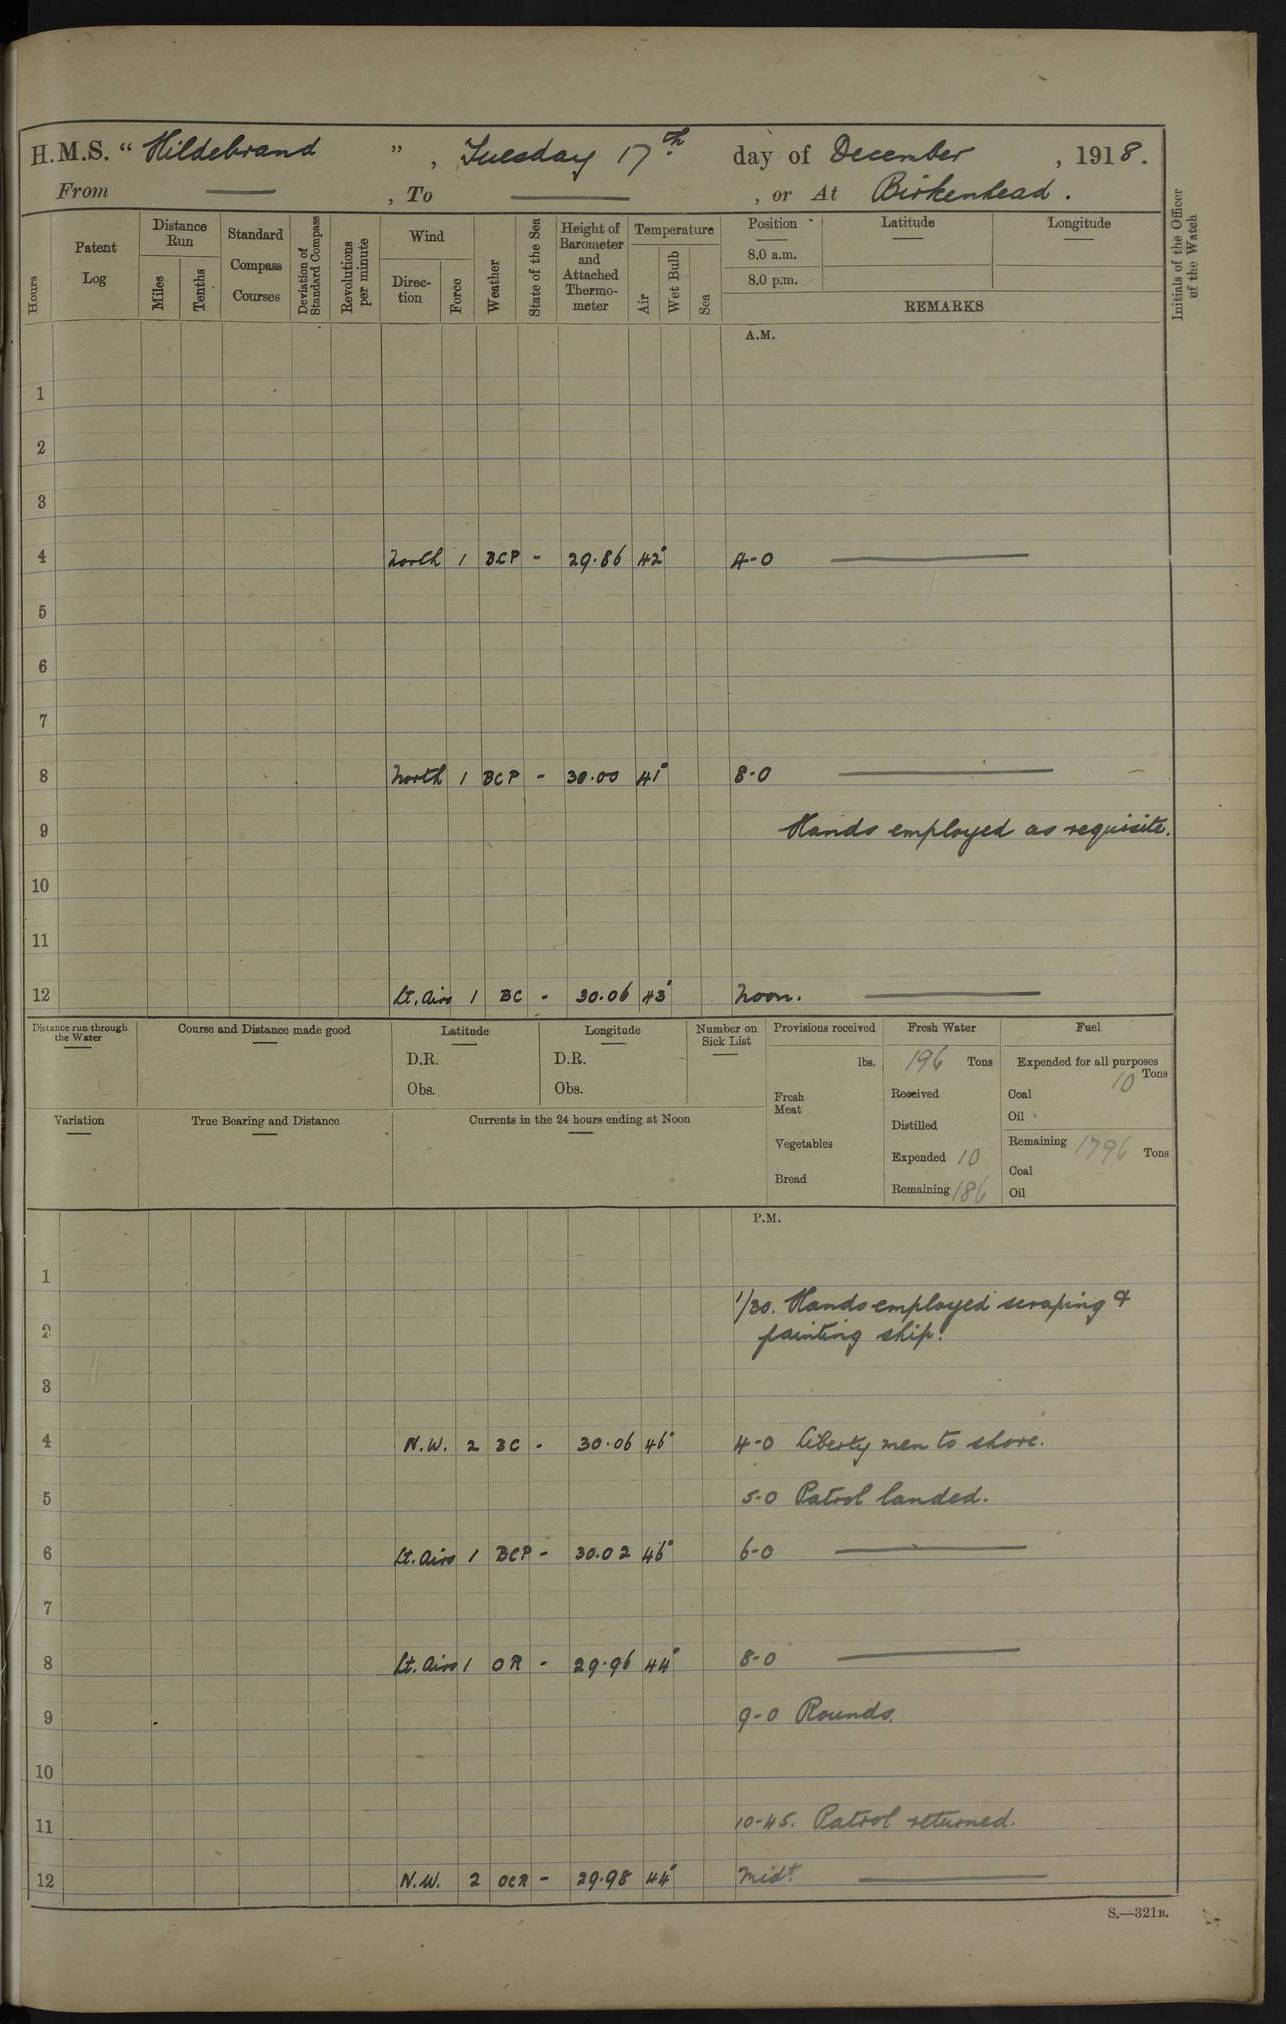 H.M.S. “ Hildebrand ” , Tuesday 17th day of December , 1918.
From — , To — , or At Birkenhead.
Hours
Patent Log
Distance Run
Miles
Tenths
Standard Compass Courses
Deviation of Standard Compass
Revolutions per minute
Wind
Direction
Force
Weather
State of the Sea
Height of Barometer and Attached Thermometer
Temperature
Air
Wet Bulb
Sea
Position
8.0 a.m.
8.0 p.m.
Latitude
Longitude
REMARKS
Initials of the Officer of the Watch
A.M.
1
2
3
4 North 1 BCP - 29.86 42° 4-0 —
5
6
7
8 North 1 BCP - 30.00 41° 8-0 —
9 Hands employed as requisite.
10
11
12 Lt. Airs 1 BC - 30.06 43° Noon. —
Distance run through the Water
Course and Distance made good
Latitude
D.R.
Obs.
Longitude
D.R.
Obs.
Number on Sick List
Provisions received
lbs.
Fresh Meat
Vegetables
Bread
Fresh Water
196 Tons
Received
Distilled
Expended 10
Remaining 186
Fuel
Expended for all purposes
10 Tons
Coal
Oil
Remaining 1796 Tons
Coal
Oil
Variation
True Bearing and Distance
Currents in the 24 hours ending at Noon
P.M.
1
1/30. Hands employed scraping &
2 painting ship.
3
4 N.W. 2 BC - 30.06 46° 4-0 Liberty men to shore.
5 5-0 Patrol landed.
6 Lt. Airs 1 BCP - 30.02 46° 6-0 —
7
8 Lt. Airs 1 OR - 29.96 44° 8-0 —
9 9-0 Rounds.
10
11 10-45. Patrol returned.
12 N.W. 2 OCR - 29.98 44° Midt. —
S.—321B.